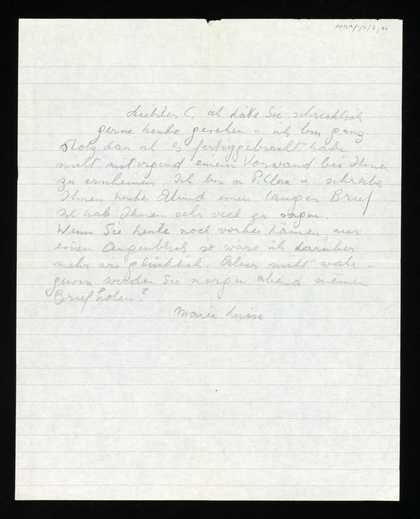 Liebster C, ich hätte Sie schrecklich
gerne heute gesehen u. ich bin ganz
stolz dass ich es fertiggebracht habe
nicht mit irgend einem Vorwand bei Ihnen
zu erscheinen. Ich bin in u. schreibe
Ihnen heute Abend einen langen Brief
Ich hab Ihnen sehr viel zu sagen.
Wenn Sie heute noch vorbei kämen, nur
einen Augenblick so wäre ich darüber
mehr wie glücklich. Aber nicht wahr
werden Sie morgen Abend meinen
Brief holen?
Marie Luise